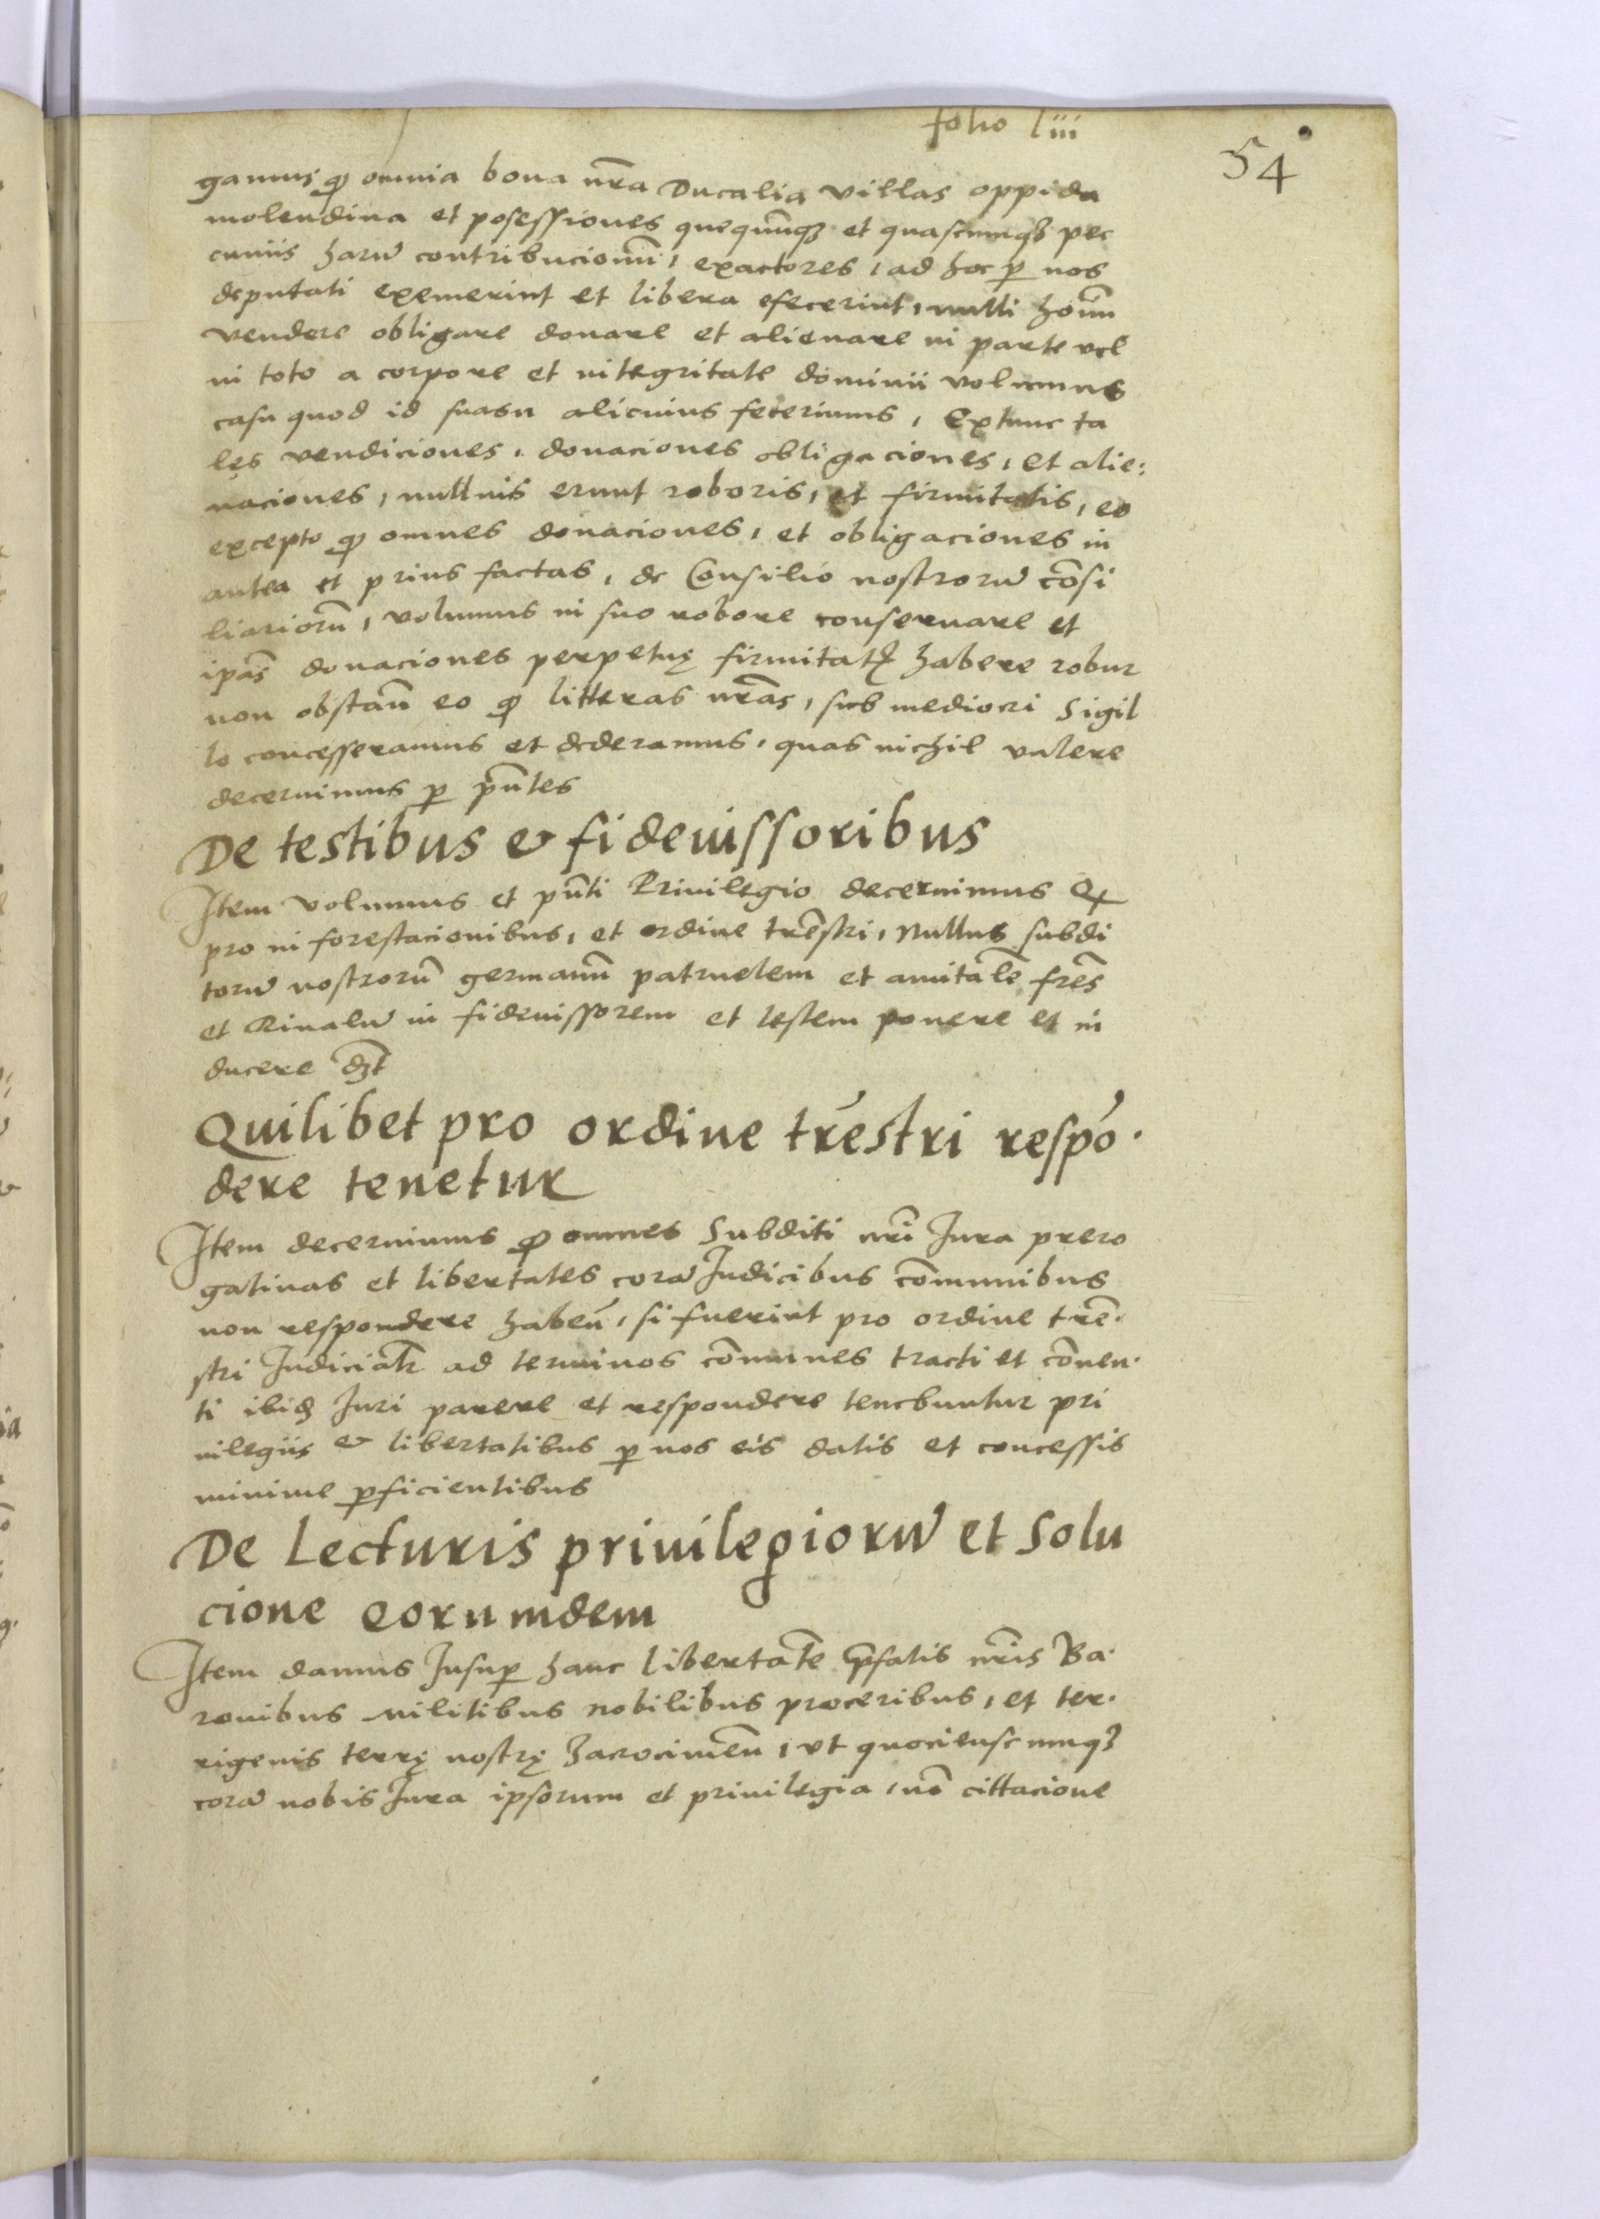 folio liii
54
gamus ꝙ omnia bona nr̃a Ducalia villas oppida
molendina et posessiones quequũqꝫ et quascumqꝫ pec
cuniis harũ contribucionũ, exactores, ad hoc ꝑ nos
deputati exemerint et libera efecerint, nulli hoĩm
vendere obligare donare et alienare in parte vel
in toto a corpore et integritate dominii volumus
casu quod id suasu alicuius fecerimus, Extunc ta
lęs vendiciones, donaciones obligaciones, et alie:
naciones, nullius erunt roboris, et firmitatis, eo
excepto ꝙ omnes donaciones, et obligaciones in
antea et prius factas, de Consilio nostrorũ cõsi
liariorũ, volumus in suo robore conseruare et
ip̃as donaciones perpetuę firmitatꝭ habere robur
non obstañ eo ꝙ litteras nr̃as, sub mediocri Sigil
lo concesseramus et dederamus, quas nichil valere
decernimus ꝑ pñtes
De testibus & fideiussoribus
Item volumus et pñti Priuilegio decernimus Ꝙ
pro in forestacionibus, et ordine trẽstri, Nullus subdi
torũ nostrorũ germanũ patruelem et amitalẽ fr̃es
et Riualẽ in fideiussorem et testem ponere et in
ducere dꝫt
Quilibet pro ordine tr̃estri respõ.
dere tenetur
Item decernimus ꝙ omnes Subditi nr̃i Jura prero
gatiuas et libertates corã Judicibus cõmunibus
non respondere habeñ, si fuerint pro ordine trẽ.
stri Judicialr̃ ad terminos cõmunes tracti et cõuen.
ti ibiꝺ Juri parere et respondere tenebuntur pri
uilegiis & libertatibus ꝑ nos eis datis et concessis
minime ꝓficientibus
De Lecturis priuilegiorũ et Solu
cione eorumdem
Item damus Insuꝑ hanc libertatẽ p̃fatis nr̃is Ba.
ronibus militibus nobilibus proceribus, et ter.
rigenis terrę nostrę Zacrocimeñ, vt quocienscumqꝫ
corã nobis Jura ipsorum et priuilegia, nõ cittacione